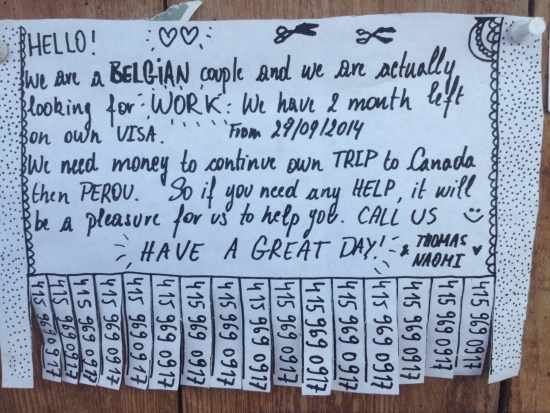 HELLO!
We are a BELGIAN couple and we are actually
looking for WORK. We have 2 month left
on own VISA. From 29/09/2014
We need money to continue own TRIP to Canada
then PEROU. So if you need any HELP, it will
be a pleasure for us to help you. CALL US
HAVE A GREAT DAY! & THOMAS
NAOMI
415 969 0917
415 969 0917
415 969 0917
415 969 0917
415 969 0917
415 969 0917
415 969 0917
415 969 0917
415 969 0917
415 969 0917
415 969 0917
415 969 0917
415 969 0917
415 969 0917
415 969 0917